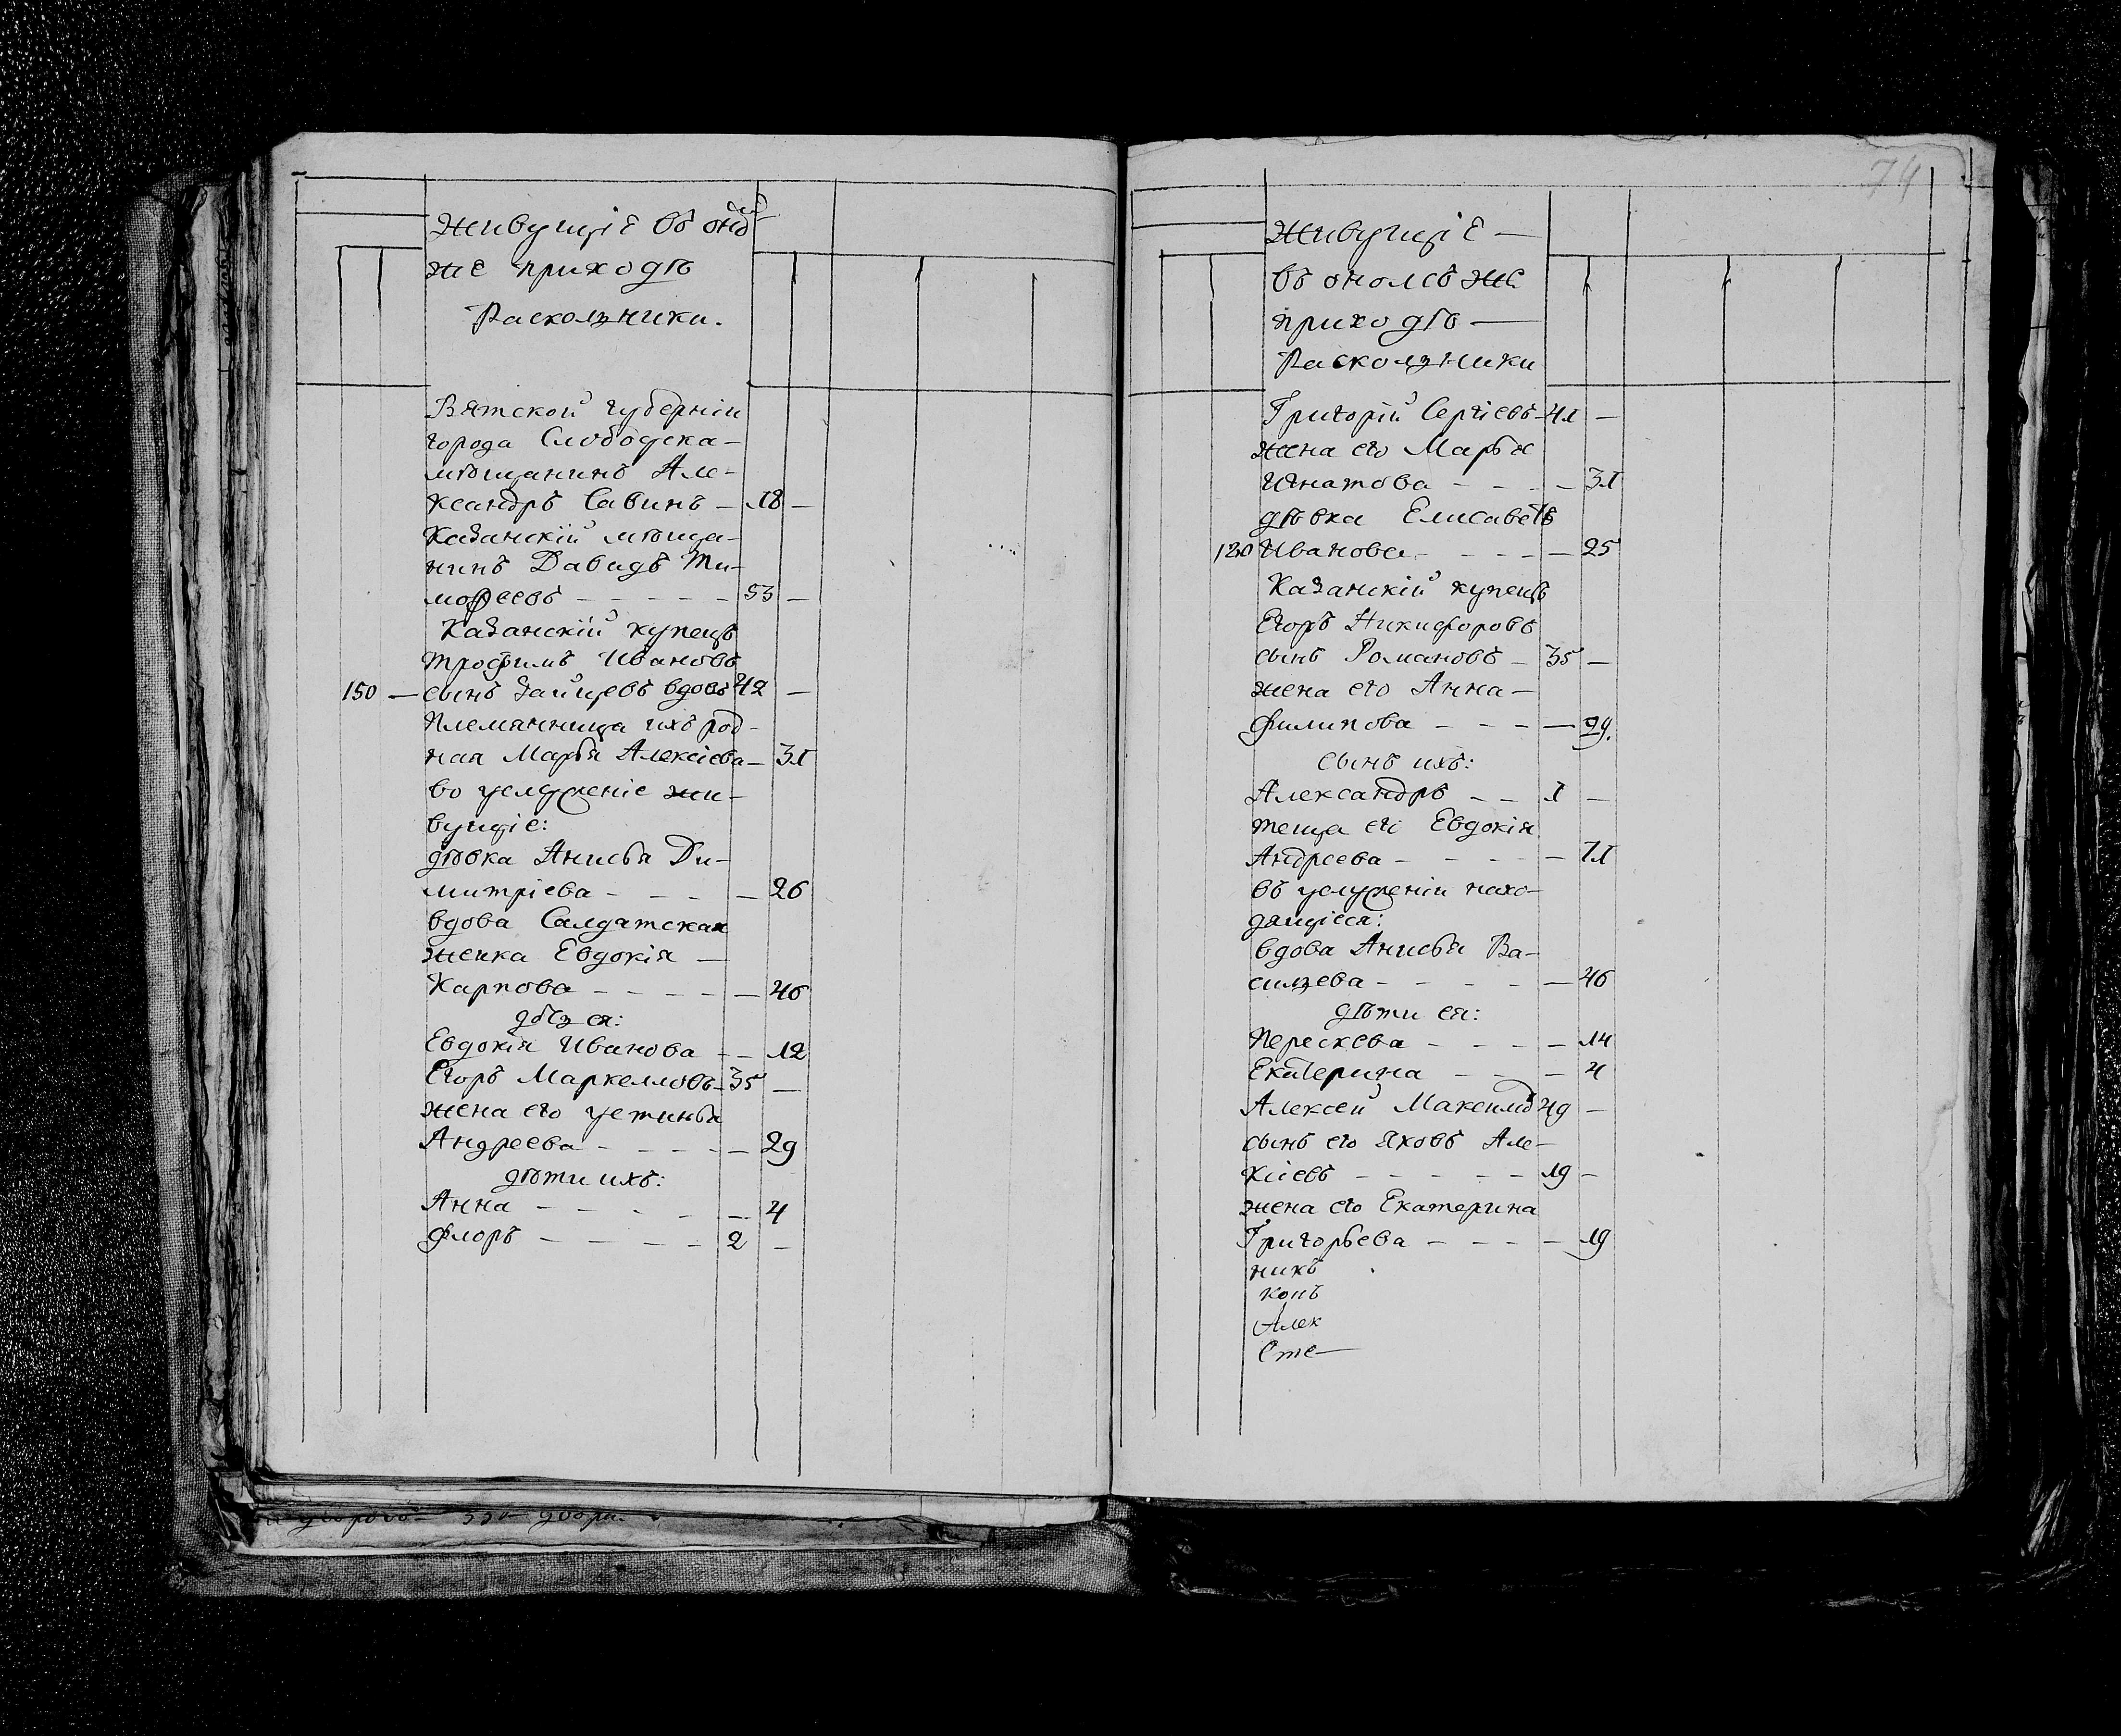 живущіе въ оно
же приходѣ
Раскольники.
Вятской губерніи
города Слободска-
мѣщанинъ Але-
ксандръ Савинъ - 18 -
Казанскій мѣща-
нинъ Давидъ Ти-
мофеевъ - - - - - 53 -
Казанскій купецъ
Трофимъ Ивановъ
150 - сынъ Зайцевъ вдовъ 42 -
племянница ихъ род-
ная Марья Алексіева - 31
во услуженіе жи-
вущіе:
дѣвка Анисья Ди-
митріева - - - - 26
вдова Салдатская
женка Евдокія -
Карпова - - - - - 46
дочь ея:
Евдокія Иванова - - 12
Егоръ Маркелловъ - 35 -
жена его Устинья
Андреева - - - - - 29
дѣти ихъ:
Анна - - - - - 4
Флоръ - - - - - 2 -
74
живущіе -
въ ономъ же
приходѣ -
Раскольники
Григорій Сергіевъ - 41 -
жена его Марья
Игнатова - - - - 31
дѣвка Елисаветъ
120 Иванова - - - - 25
Казанскій купецъ
Егоръ Никифоровъ
сынъ Романовъ - 35 -
жена его Анна -
Филипова - - - - 29.
сынъ ихъ:
Александръ - - 1 -
теща его Евдокія
Андреева - - - - - 71
въ услуженіи нахо-
дящіеся:
вдова Анисья Ва-
сильева - - - - - 46
дѣти ея:
Перескева - - - - 14
Екатерина - - - 4
Алексей Максимо 49 -
сынъ его Яковъ Але-
ксіевъ - - - - - 19 -
жена его Екатерина
Григорьева - - - - 19
никъ
конъ
Алек
Сте-